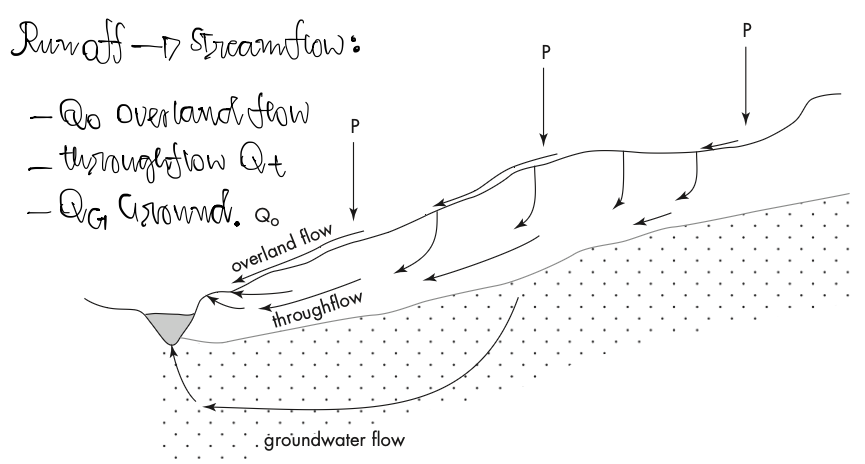 Runoff → Streamflow:
- Qo overland flow
- throughflow Qt
- QG Ground. Qo
P
P
P
overland flow
throughflow
groundwater flow